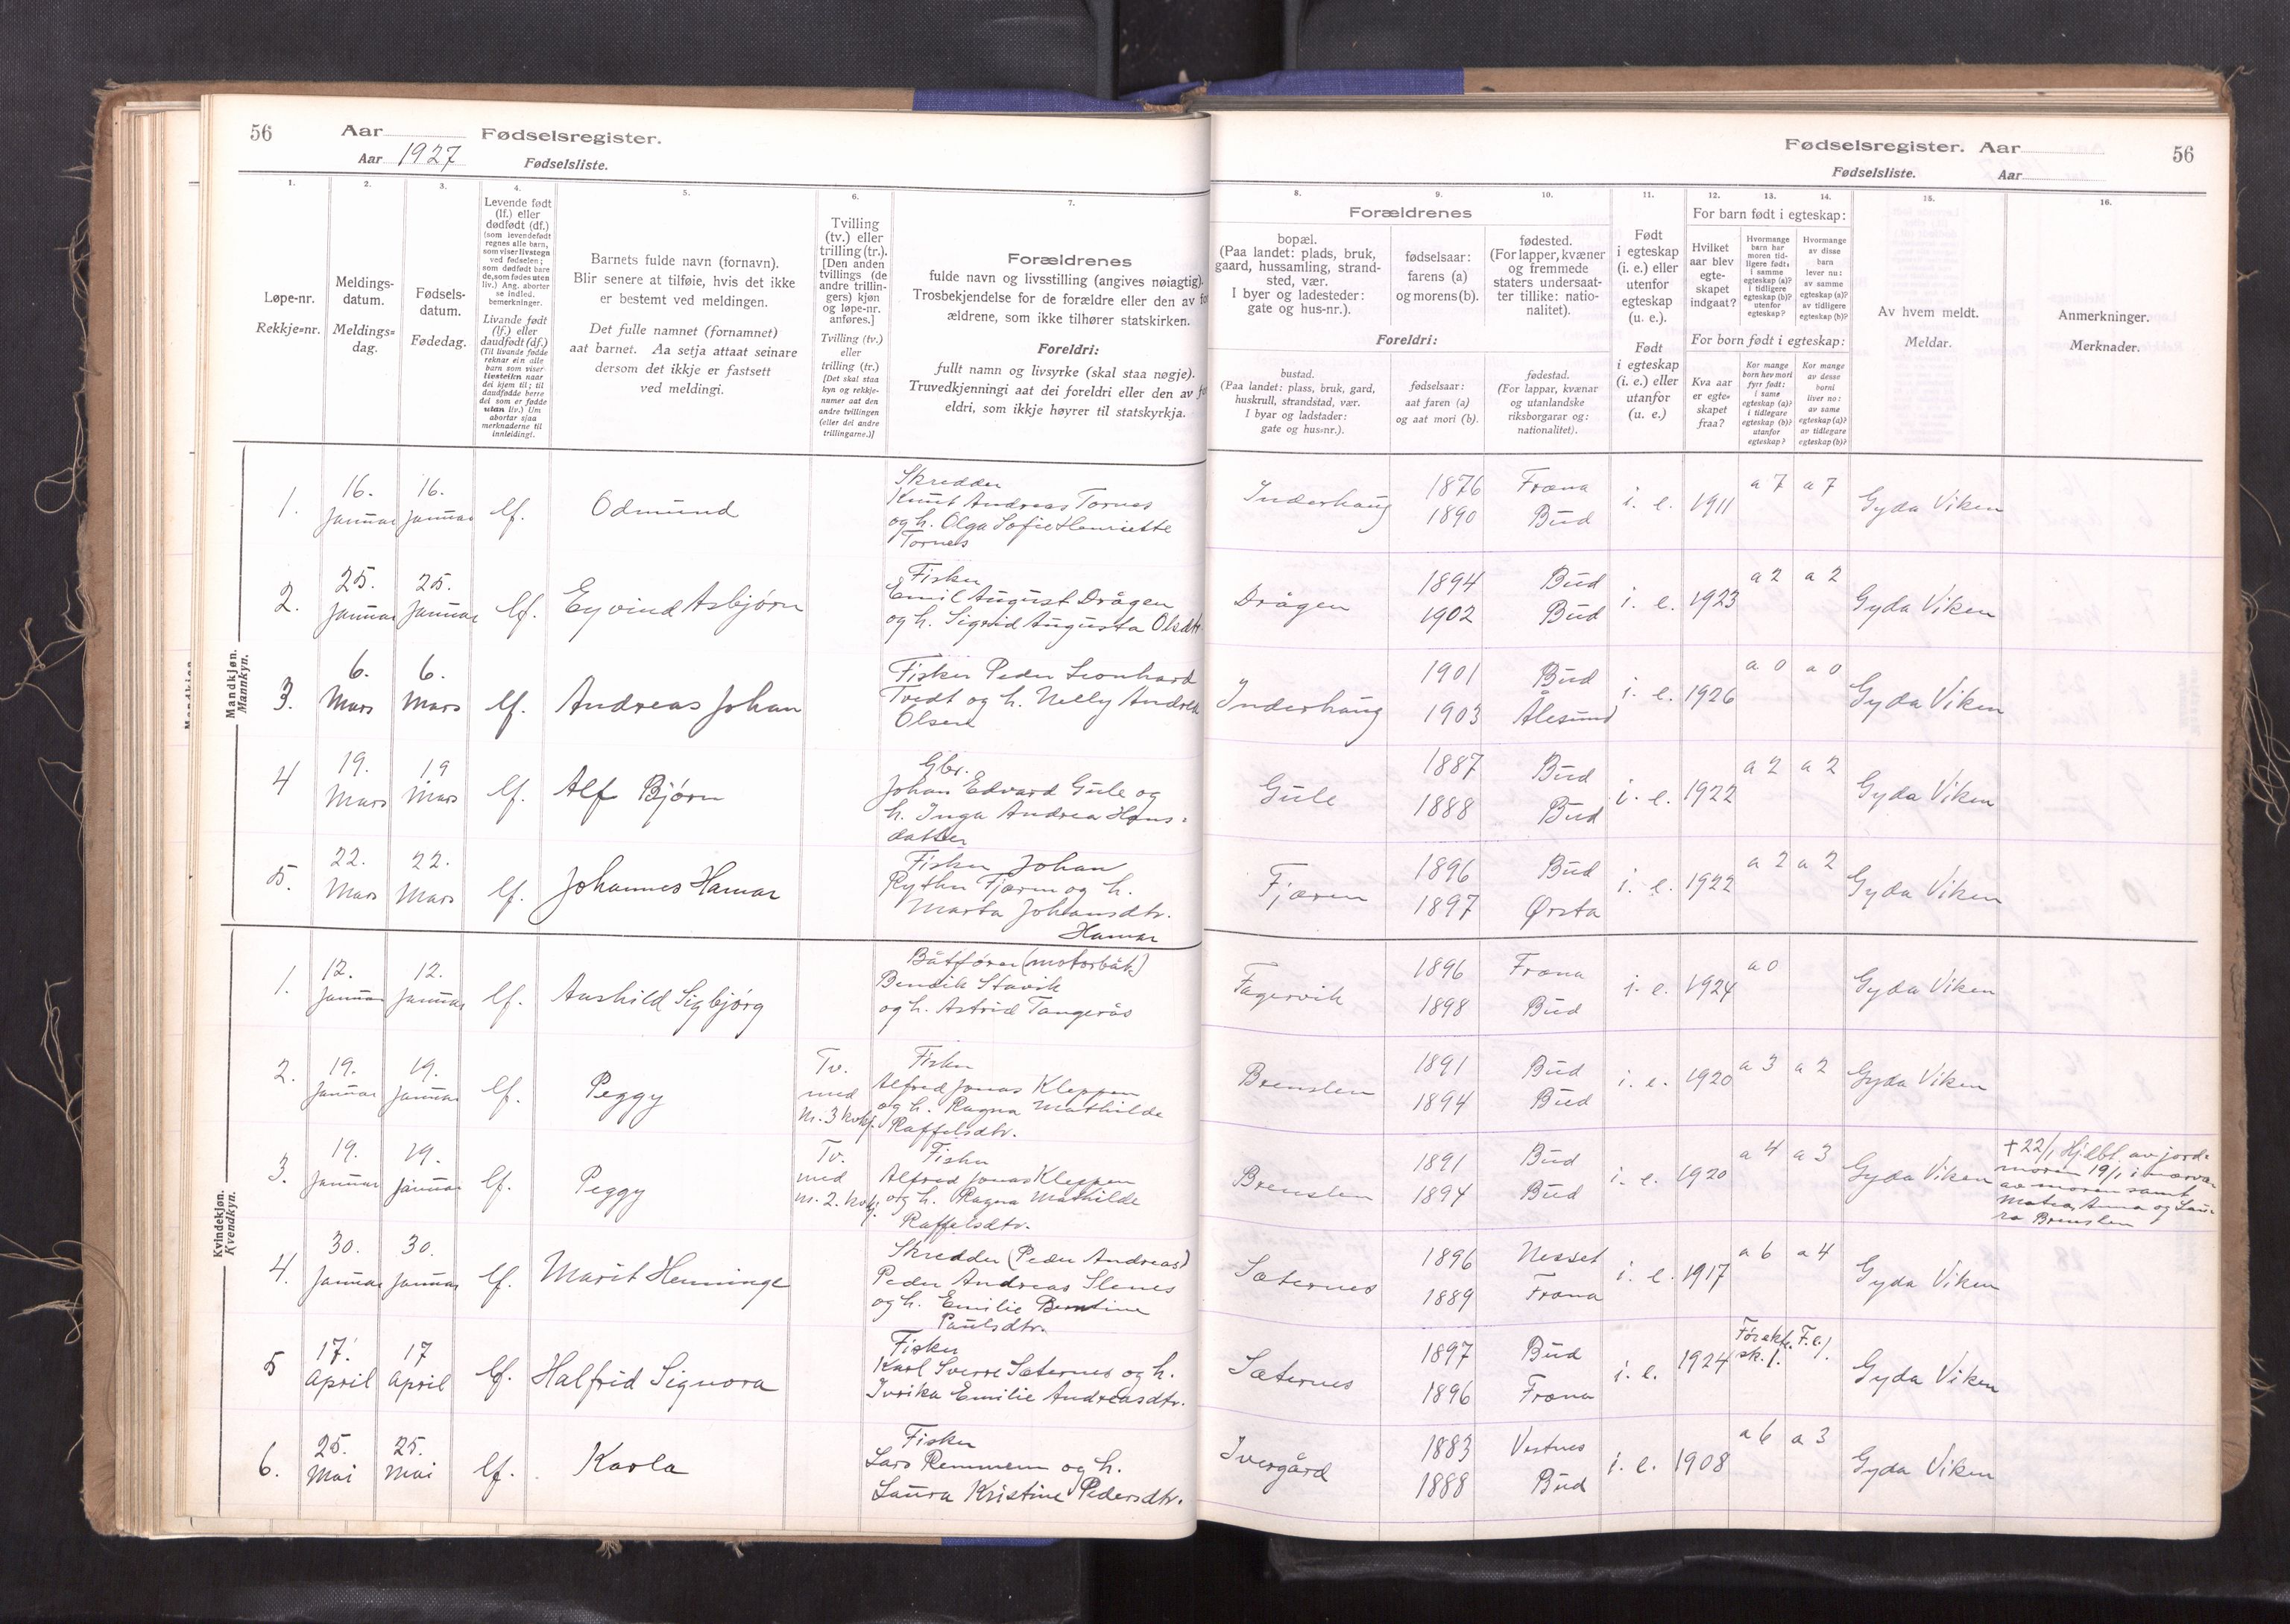 56
Aar
Fødselsregister.
Aar 1927
Fødselsliste.
1.
Løpe-nr.
Rekkje=nr.
2.
Meldings-
datum.
Meldings=
dag.
3.
Fødsels-
datum.
Fødedag.
4.
Levende født
(lf.) eller
dødfødt (df.)
(som levendefødt
regnes alle barn,
som viser livstegn
ved fødselen;
som dødfødt bare
de, som fødes uten
liv.) Ang. aborter
se indled.
bemerkninger.
Livande født
(lf.) eller
daudfødt (df.)
(Til livande fødde
reknar ein alle
barn som viser
livsteikn naar
dei kjem til; til
daudfødde berre
dei som er fødde
utan liv.) Um
abortar sjaa
merknaderne til
innleidingi.
5.
Barnets fulde navn (fornavn).
Blir senere at tilføie, hvis det ikke
er bestemt ved meldingen.
Det fulle namnet (fornamnet)
aat barnet. Aa setja attaat seinare
dersom det ikkje er fastsett
ved meldingi.
6.
Tvilling
(tv.) eller
trilling (tr.).
[Den anden
tvillings (de
andre trillin-
gers) kjøn
og løpe-nr.
anføres.]
Tvilling (tv.)
eller
trilling (tr.)
[Det skal staa
kyn og rekkje-
numer aat den
andre tvillingen
(eller dei andre
trillingarne.)]
7.
Forældrenes
fulde navn og livsstilling (angives nøiagtig).
Trosbekjendelse for de forældre eller den av for
ældrene, som ikke tilhører statskirken.
Foreldri:
fullt namn og livsyrke (skal staa nøgje).
Truvedkjenningi aat dei foreldri eller den av for
eldri, som ikkje høyrer til statskyrkja.
Mandkjøn.
Mannkyn.
1.
16.
Januar
16.
Januar
lf.
Odmund
Skredder
Knut Andreas Tornes
og h. Olga Sofie Henriette
Tornes
2.
25.
Januar
25.
Januar
lf.
Eyvind Asbjørn
Fisker
Emil August Drågen
og h. Sigrid Augusta Olsdtr
3.
6.
Mars
6.
Mars
lf.
Andreas Johan
Fisker Peder Leonhard
Tvedt og h. Nelly Andrea
Olsen
4
19.
Mars
19
Mars
lf.
Alf Bjørn
Gbr.
Johan Edvard Gule og
h. Inga Andrea Hans=
datter
5.
22.
Mars
22.
Mars
lf.
Johannes Hamar
Fisker Johan
Ryther Fjæren og h.
Marta Johansdtr.
Hamar
Kvindekjøn.
Kvendkyn.
1.
12.
Januar
12.
Januar
lf.
Aashild Sigbjørg
Båtfører (motorbåt)
Bendik Stavik
og h. Astrid Tangerås
2.
19.
Januar
19.
Januar
lf.
Peggy
Tv.
med
nr. 3 kvkj.
Fisker
Alfred Jonas Kleppen
og h. Ragna Mathilde
Raffelsdtr.
3.
19.
Januar
19.
Januar
lf.
Peggy
Tv.
med
nr. 2. kvkj.
Fisker
Alfred Jonas Kleppen
og h. Ragna Mathilde
Raffelsdtr.
4.
30.
Januar
30.
Januar
lf.
Marit Henninge
Skredder (Peder Andreas)
Peder Andreas Slenes
og h. Emilie Berntine
Paulsdtr.
5
17.
April
17
April
lf.
Halfrid Signora
Fisker
Karl Sverre Sæternes og h.
Jvrika Emilie Andreasdtr.
6.
25.
Mai
25.
Mai
lf.
Karla
Fisker
Lars Remmem og h.
Laura Kristine Pedersdtr.
Fødselsregister. Aar
56
Fødselsliste.
Aar
8.
Forældrenes
bopæl.
(Paa landet: plads, bruk,
gaard, hussamling, strand-
sted, vær.
I byer og ladesteder:
gate og hus-nr.).
9.
fødselsaar:
farens (a)
og morens (b).
10.
fødested.
(For lapper, kvæner
og fremmede
staters undersaat-
ter tillike: natio-
nalitet).
Foreldri:
bustad.
(Paa landet: plass, bruk, gard,
huskrull, strandstad, vær.
I byar og ladstader:
gate og hus=nr.).
fødselsaar:
aat faren (a)
og aat mori (b).
fødestad.
(For lappar, kvænar
og utanlandske
riksborgarar og:
nationalitet).
11.
Født
i egteskap
(i. e.) eller
utenfor
egteskap
(u. e.).
Født
i egteskap
(i. e.) eller
utanfor
egteskap
(u. e.)
12.
13.
14.
For barn født i egteskap:
Hvilket
aar blev
egte-
skapet
indgaat?
Hvormange
barn har
moren tid-
ligere født:
i samme
egteskap (a)?
i tidligere
egteskap (b)?
utenfor
egteskap?
Hvormange
av disse
barn
lever nu:
av samme
egteskap (a)?
av tidligere
egteskap (b)?
For born født i egteskap:
Kva aar
er egte=
skapet
fraa?
Kor mange
born hev mori
fyrr født:
i same
egteskap (a)?
i tidlegare
egteskap (b)?
utanfor
egteskap?
Kor mange
av desse
borni
liver no:
av same
egteskap (a)?
av tidlegare
egteskap (b)?
15.
Av hvem meldt.
Meldar.
16.
Anmerkninger.
Merknader.
Inderhaug
1876
1890
Fræna
Bud
i. e.
1911
a 7
a 7
Gyda Viken
Drågen
1894
1902
Bud
Bud
i. e.
1923
a 2
a 2
Gyda Viken
Inderhaug
1901
1903
Bud
Ålesund
i. e.
1926
a 0
a 0
Gyda Viken
Gule
1887
1888
Bud
Bud
i. e.
1922
a 2
a 2
Gyda Viken
Fjæren
1896
1897
Bud
Ørsta
i. e.
1922
a 2
a 2
Gyda Viken
Fagervik
1896
1898
Fræna
Bud
i. e.
1924
a 0
Gyda Viken
Brenslen
1891
1894
Bud
Bud
i. e.
1920
a 3
a 2
Gyda Viken
Brenslen
1891
1894
Bud
Bud
i. e.
1920
a 4
a 3
Gyda Viken
+ 22/1 Hj.dbt. av jord=
moren 19/1 i nærvær
av moren samt
Matea, Anna og Lau=
ra Brenslen
Sæternes
1896
1889
Nesset
Fræna
i. e.
1917
a 6
a 4
Gyda Viken
Sæternes
1897
1896
Bud
Fræna
i. e.
1924
Før ekte
sk. 1.
F. e. 1.
Gyda Viken
Ivergård
1883
1888
Vestnes
Bud
i. e.
1908
a 6
a 3
Gyda Viken